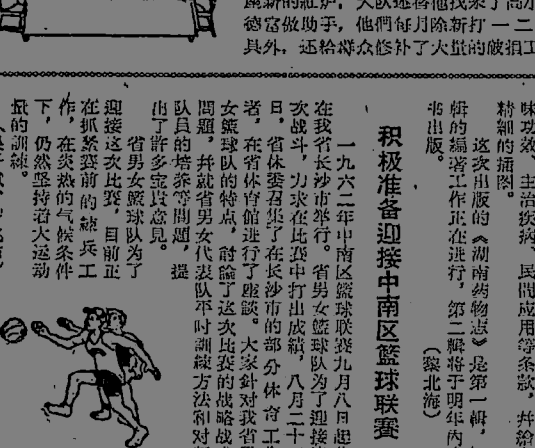 德富做助手，他們每月除新打一二
具外，还給群众修补了大量的破损工
味功效、主治疾病、民間应用等条款，幷給
精細的插图。
这次出版的《湖南药物志》是第一輯，
輯的編著工作正在进行，第二輯将于明年內
书出版。
（黎北海）
积极准备迎接中南区籃球联赛
一九六二年中南区籃球联赛九月八日起
在我省长沙市举行。省男女籃球队为了迎接
次战斗，力求在比赛中打出成績，八月二十
日，省体委召集了在长沙市的部分体育工
者，在省体育館进行了座談。大家針对我省
女籃球队的特点，討論了这次比赛的战略战
問題，幷就省男女代表队平时訓練方法和对
队員的培养等問題，提
出了許多宝貴意見。
省男女籃球队为了
迎接这次比赛，目前正
在抓紧赛前的練兵工
作，在炎热的气候条件
下，仍然坚持着大运动
量的訓練。